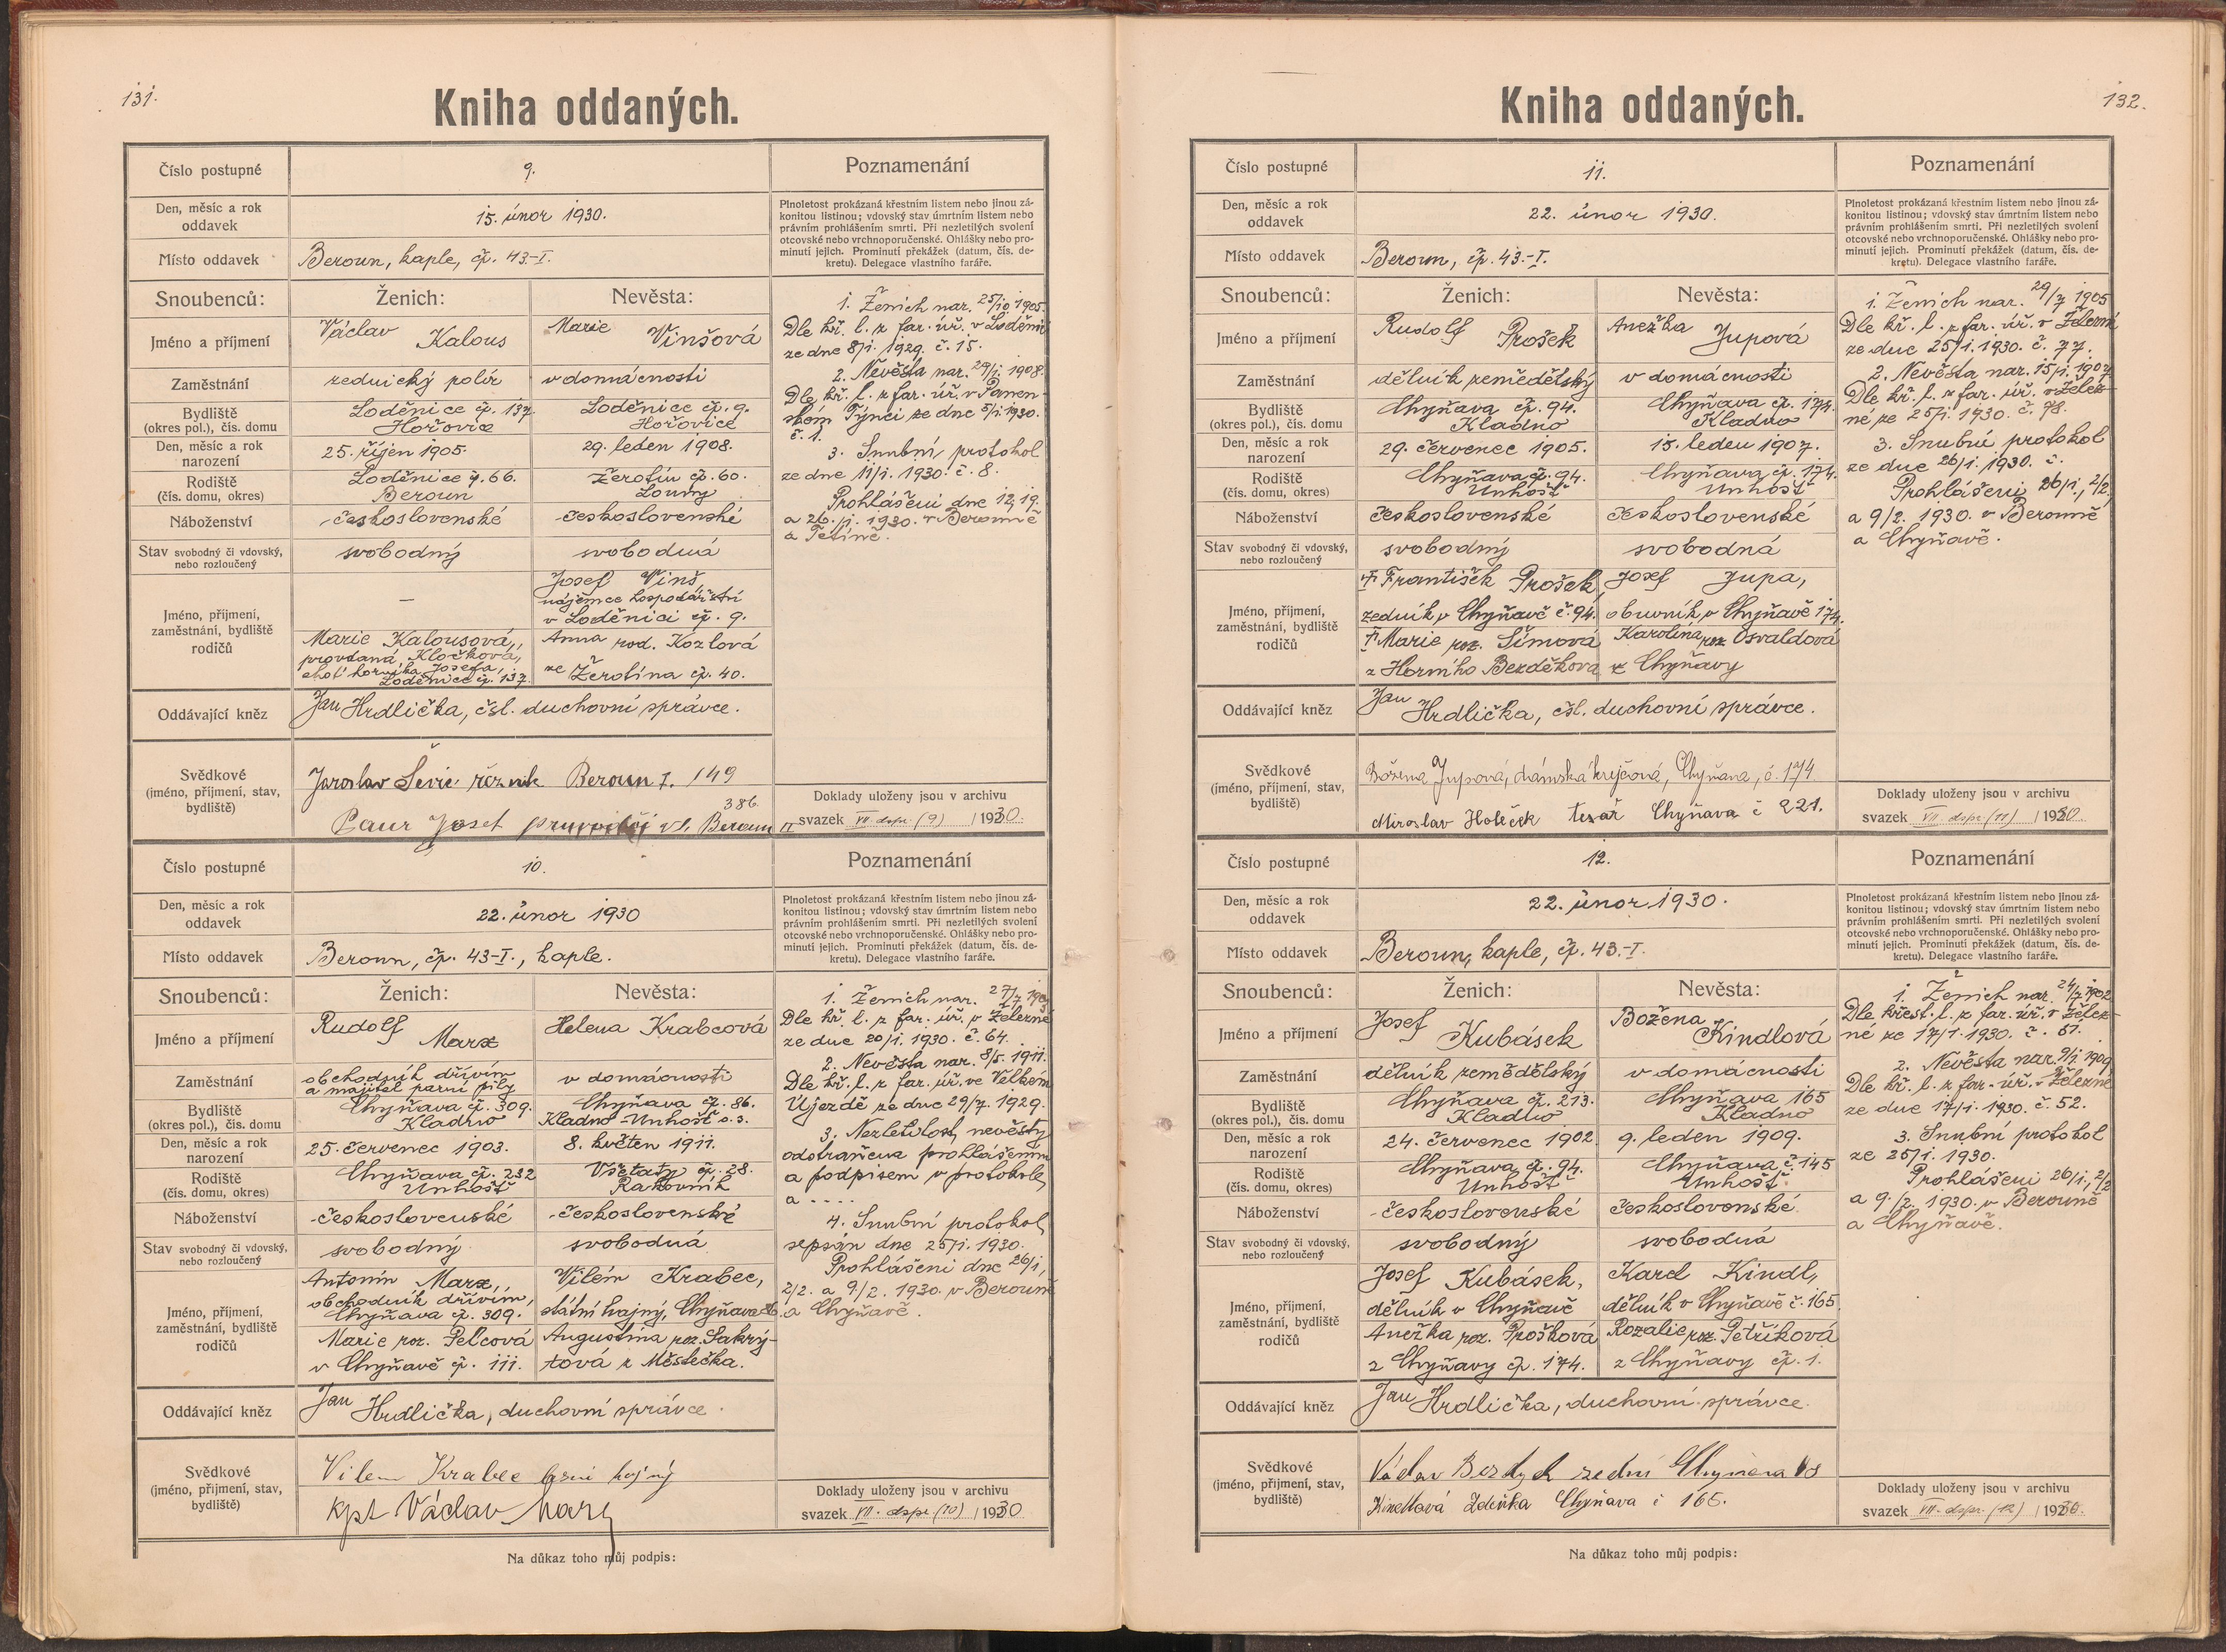 131.
Kniha oddaných.
Číslo postupné
9.
Poznamenání
Den, měsíc a rok
oddavek
15. únor 1930.
Plnoletost prokázaná křestním listem nebo jinou zá-
konitou listinou; vdovský stav úmrtním listem nebo
právním prohlášením smrti. Při nezletilých svolení
otcovské nebo vrchnoporučenské. Ohlášky nebo pro-
minutí jejich. Prominutí překážek (datum, čís. de-
kretu). Delegace vlastního faráře.
Místo oddavek
Beroun, kaple, čp. 43-I.
Snoubenců:
Ženich:
Nevěsta:
Jméno a příjmení
Václav Kalous
Marie Vinšová
Zaměstnání
zednický polír
v domácnosti
Bydliště
(okres pol.), čís. domu
Loděnice čp. 137
Hořovice
Loděnice čp. 9.
Hořovice
Den, měsíc a rok
narození
25. říjen 1905.
29. leden 1908.
Rodiště
(čís. domu, okres)
Loděnice č. 66.
Beroun
Žerotín čp. 60.
Louny
Náboženství
československé
československé
Stav svobodný či vdovský,
nebo rozloučený
svobodný
svobodná
Jméno, příjmení,
zaměstnání, bydliště
rodičů
—
Marie Kalousová,
provdaná Kločková,
choť horníka Josefa,
Loděnice čp. 137
Josef Vinš,
nájemce hospodářství
v Loděnici čp. 9.
Anna rod. Kozlová
ze Žerotína čp. 40.
Oddávající kněz
Jan Hrdlička, čsl. duchovní správce.
Svědkové
(jméno, příjmení, stav,
bydliště)
Jaroslav řezník Beroun I. 149
Josef Beroun II 386.
1. Ženich nar. 25/10 1905.
Dle kř. l. z far. úř. v Loděnici
ze dne 8/1. 1929. č. 15.
2. Nevěsta nar. 29/1. 1908.
Dle kř. l. z far. úř. v Panen-
ském Týnci ze dne 5/1 1930.
č. 1.
3. Snubní protokol
ze dne 11/1. 1930. č. 8.
Prohlášení dne 12, 19.
a 26./1. 1930. v Berouně
a Tetíně.
Doklady uloženy jsou v archivu
svazek VII dspr. (9) 1930.
Číslo postupné
10.
Poznamenání
Den, měsíc a rok
oddavek
22. únor 1930
Plnoletost prokázaná křestním listem nebo jinou zá-
konitou listinou; vdovský stav úmrtním listem nebo
právním prohlášením smrti. Při nezletilých svolení
otcovské nebo vrchnoporučenské. Ohlášky nebo pro-
minutí jejich. Prominutí překážek (datum, čís. de-
kretu). Delegace vlastního faráře.
Místo oddavek
Beroun, čp. 43-I., kaple.
Snoubenců:
Ženich:
Nevěsta:
Jméno a příjmení
Rudolf Marx
Helena Krabcová
Zaměstnání
obchodník dřívím
a majitel parní pily
v domácnosti
Bydliště
(okres pol.), čís. domu
Chyňava čp. 309.
Kladno
Chyňava čp. 86.
Kladno - Unhošť o. s.
Den, měsíc a rok
narození
25. červenec 1903.
8. květen 1911.
Rodiště
(čís. domu, okres)
Chyňava čp. 232
Unhošť
Všetaty čp. 28.
Rakovník
Náboženství
československé
československé
Stav svobodný či vdovský,
nebo rozloučený
svobodný
svobodná
Jméno, příjmení,
zaměstnání, bydliště
rodičů
Antonín Marx,
obchodník dřívím,
Chyňava čp. 309.
Marie roz. Pelcová
v Chyňavě čp. 111.
Vilém Krabec,
státní hajný, Chyňava 86.
Augustina roz. Sakrý-
tová z Městečka.
Oddávající kněz
Jan Hrdlička, duchovní správce.
Svědkové
(jméno, příjmení, stav,
bydliště)
Vilem Krabec lesní hajný
kpt Václav
1. Ženich nar.
Dle kř. l. z far. úř. v Železné
ze dne 20/1. 1930. č. 64.
2. Nevěsta nar. 8/5. 1911.
Dle kř. l. z far. úř. ve Velkém
Újezdě ze dne 29/7. 1929.
3. Nezletilost nevěsty
odstraněna prohlášením
a podpisem v protokole
a ....
4. Snubní protokol
sepsán dne 25/1. 1930.
Prohlášení dne 26/1,
2/2. a 9/2. 1930. v Berouně
a Chyňavě.
Doklady uloženy jsou v archivu
svazek VII. dspr (10) 1930
Na důkaz toho můj podpis:
132.
Kniha oddaných.
Číslo postupné
11.
Poznamenání
Den, měsíc a rok
oddavek
22. únor 1930.
Plnoletost prokázaná křestním listem nebo jinou zá-
konitou listinou; vdovský stav úmrtním listem nebo
právním prohlášením smrti. Při nezletilých svolení
otcovské nebo vrchnoporučenské. Ohlášky nebo pro-
minutí jejich. Prominutí překážek (datum, čís. de-
kretu). Delegace vlastního faráře.
Místo oddavek
Beroun, čp. 43.-I.
Snoubenců:
Ženich:
Nevěsta:
Jméno a příjmení
Rudolf Prošek
Anežka Jupová
Zaměstnání
dělník zemědělský
v domácnosti
Bydliště
(okres pol.), čís. domu
Chyňava čp. 94.
Kladno
Chyňava čp. 174.
Kladno
Den, měsíc a rok
narození
29. červenec 1905.
15. leden 1907.
Rodiště
(čís. domu, okres)
Chyňava čp. 94.
Unhošť
Chyňava čp. 174.
Unhošť
Náboženství
československé
československé
Stav svobodný či vdovský,
nebo rozloučený
svobodný
svobodná
Jméno, příjmení,
zaměstnání, bydliště
rodičů
† František Prošek,
zedník v Chyňavě č. 94.
† Marie roz. Šímová
z Horního Bezděkova
Josef Jupa,
obuvník v Chyňavě 174.
Karolina roz. Osvaldová
z Chyňavy
Oddávající kněz
Jan Hrdlička, čsl. duchovní správce.
Svědkové
(jméno, příjmení, stav,
bydliště)
Božena Jupová, dámská krejčová, Chyňava, č. 174
Miroslav Holeček tesař Chyňava č 221.
1. Ženich nar. 29/7 1905
Dle kř. l. z far. úř. v Železné
ze dne 25/1. 1930. č. 77.
2. Nevěsta nar. 15/1. 1907
Dle kř. l. z far. úř. v Želez-
né ze 25/1. 1930. č. 78.
3. Snubní protokol
ze dne 26/1. 1930. č.
Prohlášení 26/1., 2/2
a 9/2. 1930. v Berouně
a Chyňavě.
Doklady uloženy jsou v archivu
svazek VII. dspr (11) 1930.
Číslo postupné
12.
Poznamenání
Den, měsíc a rok
oddavek
22. únor 1930.
Plnoletost prokázaná křestním listem nebo jinou zá-
konitou listinou; vdovský stav úmrtním listem nebo
právním prohlášením smrti. Při nezletilých svolení
otcovské nebo vrchnoporučenské. Ohlášky nebo pro-
minutí jejich. Prominutí překážek (datum, čís. de-
kretu). Delegace vlastního faráře.
Místo oddavek
Beroun, kaple, čp. 43.-I.
Snoubenců:
Ženich:
Nevěsta:
Jméno a příjmení
Josef Kubásek
Božena Kindlová
Zaměstnání
dělník zemědělský
v domácnosti
Bydliště
(okres pol.), čís. domu
Chyňava čp. 213.
Kladno
Chyňava 165
Kladno
Den, měsíc a rok
narození
24. červenec 1902.
9. leden 1909.
Rodiště
(čís. domu, okres)
Chyňava čp. 94.
Unhošť
Chyňava č. 145
Unhošť
Náboženství
československé
československé.
Stav svobodný či vdovský,
nebo rozloučený
svobodný
svobodná
Jméno, příjmení,
zaměstnání, bydliště
rodičů
Josef Kubásek,
dělník v Chyňavě
Anežka roz. Prošková
z Chyňavy čp. 174.
Karel Kindl,
dělník v Chyňavě č. 165.
Rozalie roz. Petříková
z Chyňavy čp. 1.
Oddávající kněz
Jan Hrdlička, duchovní správce.
Svědkové
(jméno, příjmení, stav,
bydliště)
Václav Chyňava
Kindlová Zdeňka Chyňava č 165.
1. Ženich nar. 24/7 1902
Dle křest. l. z far. úř. v Želez-
né ze 17/1. 1930. č. 51.
2. Nevěsta nar. 9/1. 1909
Dle kř. l. z far. úř. v Železné
ze dne 17/1. 1930. č. 52.
3. Snubní protokol
ze 25/1. 1930.
Prohlášení 26/1., 2/2
a 9./2. 1930. v Berouně
a Chyňavě.
Doklady uloženy jsou v archivu
svazek VII. dspr. (12) 1930.
Na důkaz toho můj podpis: